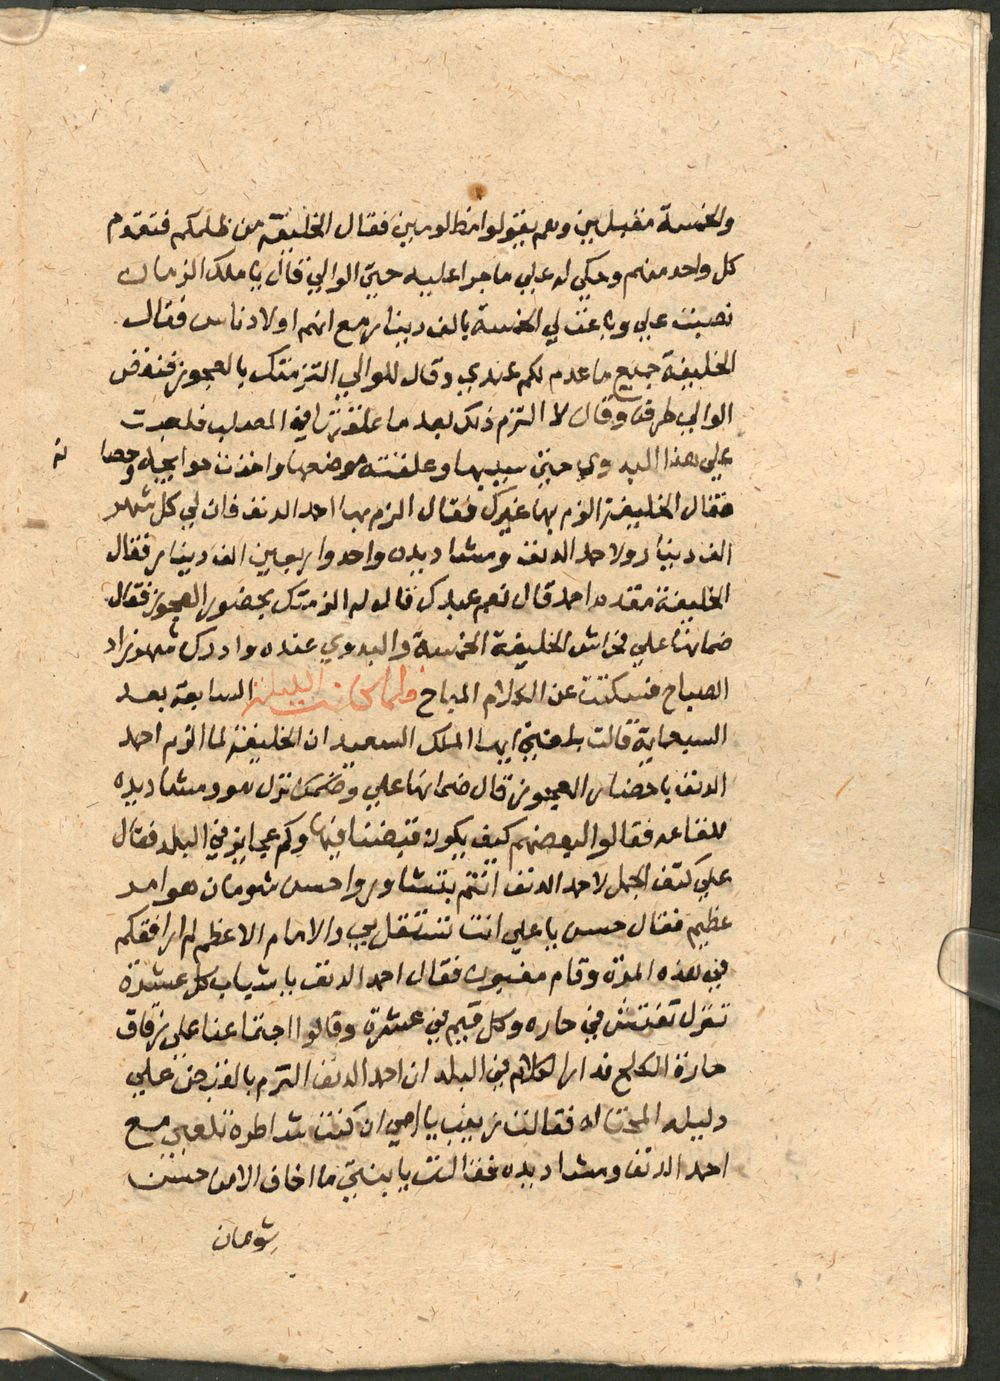 والخمسة مقبلين وهم يقولوا مظلومين فقال الخليفة من ظلمكم فتقدم
كل واحد منهم وحكي له علي ما جرا عليه حتي الوالي قال يا ملك الزمان
نصبت علي وباعت لي الخمسة بالف دينار مع انهم اولاد ناس فقال
الخليفة جميع ما عدم لكم عندي وقال للوالي التزمتك بالعجوز فنفض
الوالي طوقه وقال لا التزم ذلك بعد ما علقتها في المصلب فلعبت
علي هذا البدوي حتي سيبها وعلقته موضعها واخذت حوايجه وحصا نه
فقال الخليفة الزم بها غيرك فقال الزم بها احمد الدنف فان لي كل شهر
الف دينار ولاحمد الدنف ومشاديده واحد واربعين الف دينار فقال
الخليفة مقدم احمد قال نعم عبدك قال له الزمتك بحضور العجوز فقال
ضمانها علي فحاش الخليفة الخمسة والبدوي عنده وادرك شهرزاد
الصباح فسكتت عن الكلام المباح فلما كانت الليلة السابعة بعد
السبعماية قالت بلغني ايها الملك السعيد ان الخليفة لما الزم احمد
الدنف باحضار العجوز قال ضمانها علي نزل هو ومشاديده
للقاعه فقالوا لبعضهم كيف يكون قبضنا فيها وكم عجايز في البلد فقال
علي كتف الجمل لاحمد الدنف انتم بتشاوروا حسن شومان هو امر
عظيم فقال حسن يا علي انت تستقل بي والاسم الاعظم لم ارافقكم
في هذه المرة وقام مغبون فقال احمد الدنف يا شباب كل عشرة
تنزل تفتش في حاره وكل قيم في عشرة وقالوا اجتماعنا علي زقاق
حارة الكلخ فدار الكلام في البلد ان احمد الدنف التزم بالقبض علي
دليله المحتاله فقالت زينب يا امي ان كنت شاطره تلعبي مع
احمد الدنف ومشاديده فقالت يا بنتي ما اخاف الا من حسن
شومان